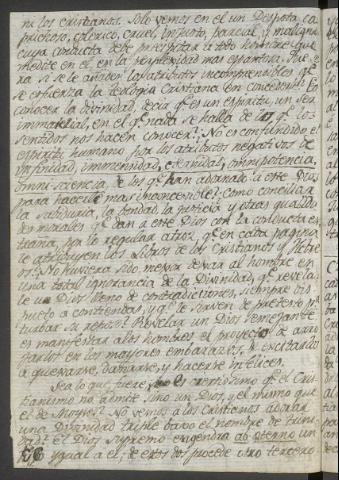 ni los cristianos. Solo vemos en el un Despota, ca
prichoso, colerico, cruel, injusto, parcial, y maligno
cuya conducta debe precipitar a todo hombre que
medite en el en la perplexidad mas espantosa. Que
ra si se le añaden los atributos incomprensibles qe
se esfuerza la teologia Cristiana en concederle? Es
conocer la divinidad, decir qe es un espiritu, un ser
immaterial, en el qe nada se halla de lo qe los
sentidos nos hacen conocer? No es confundido el
espiritu humano por los atributos negativos de
infinidad, immensidad, eternidad, omnipotencia,
omni-sciencia, de los qe han adornado a este Dios
para hacerle mas inconcevible? Como conciliar
la sabiduria, la bondad, la justicia y otras qualida
des morales qe dan a este Dios con la conducta ex
traña, y por lo regular atroz, qe en cada pagina
le atribuyen los Libros de los Cristianos y Hebre
os? No huviera sido mejor dexar al hombre en
una total ignorancia de la Divinidad qe revelar
le un Dios lleno de contradicciones, siempre dis
puesto a contiendas, y qe le sirven de pretexto pa
turbar su reposo? Revelar un Dios semejante
es manifestar a los hombres el proyecto de arro
jarlos en los mayores embarazos, y excitarlos
a quexarse, dañarse, y hacerse infelices.
Sea lo que fuere, es ciertisimo qe el Cris
tianismo no admite sino un Dios, y el mismo que
el de Moyses? No vemos a los Cristianos adorar
una Divinidad triple bavo el nombre de trini
dad? El Dios supremo engendra ab eterno un
56 ygual a el; de estos dos procede otro tercero